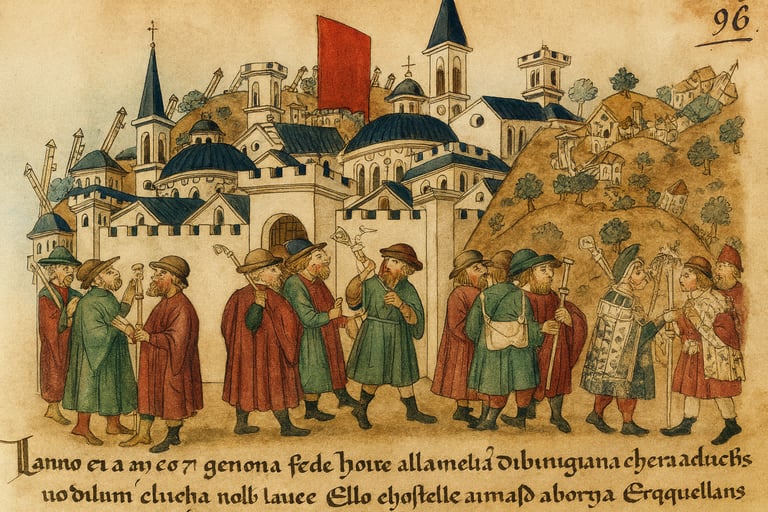 96
Lanno et a m eo 7 genona fede hoire allamelia dibinigiana cheraaduchs
uo dilum clucha nolb lauee Ello chostelle aimasd aborya Erqquellans